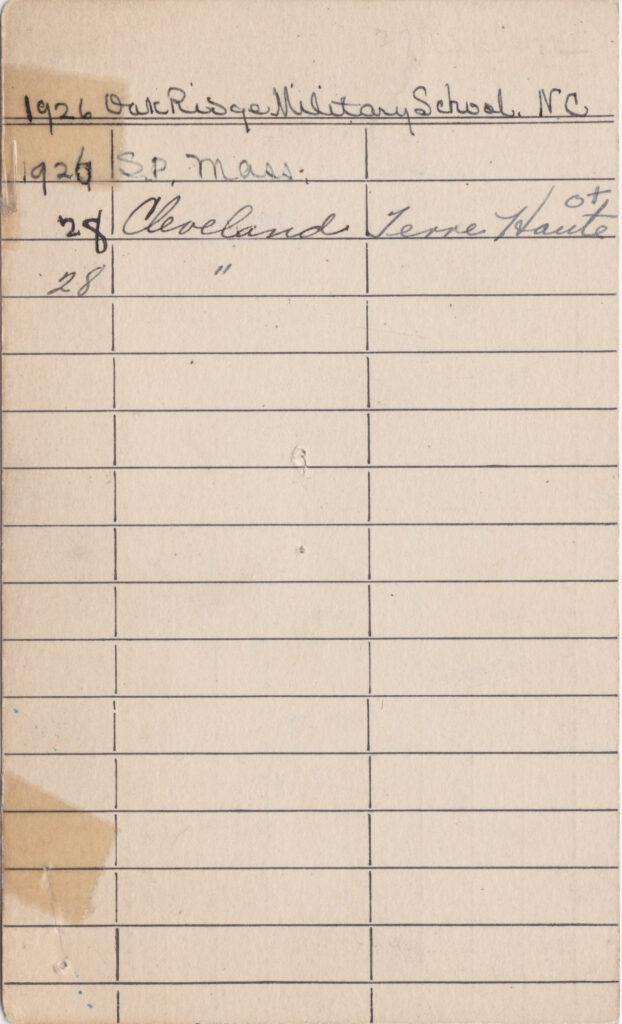 1926 Oak Ridge Military School. N C
1926 S.P. Mass.
28 Cleveland Terre Haute ot
28 "